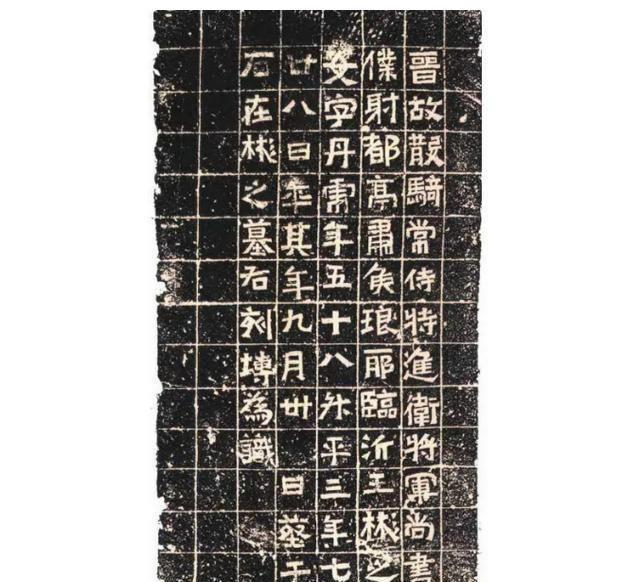 晉故散騎常侍特進衛將軍尚書
僕射都亭肅侯琅耶臨沂王彬之
女字丹虎年五十八升平三年七
廿八日卒其年九月卅 日葬于
石在彬之墓右刻塼為識